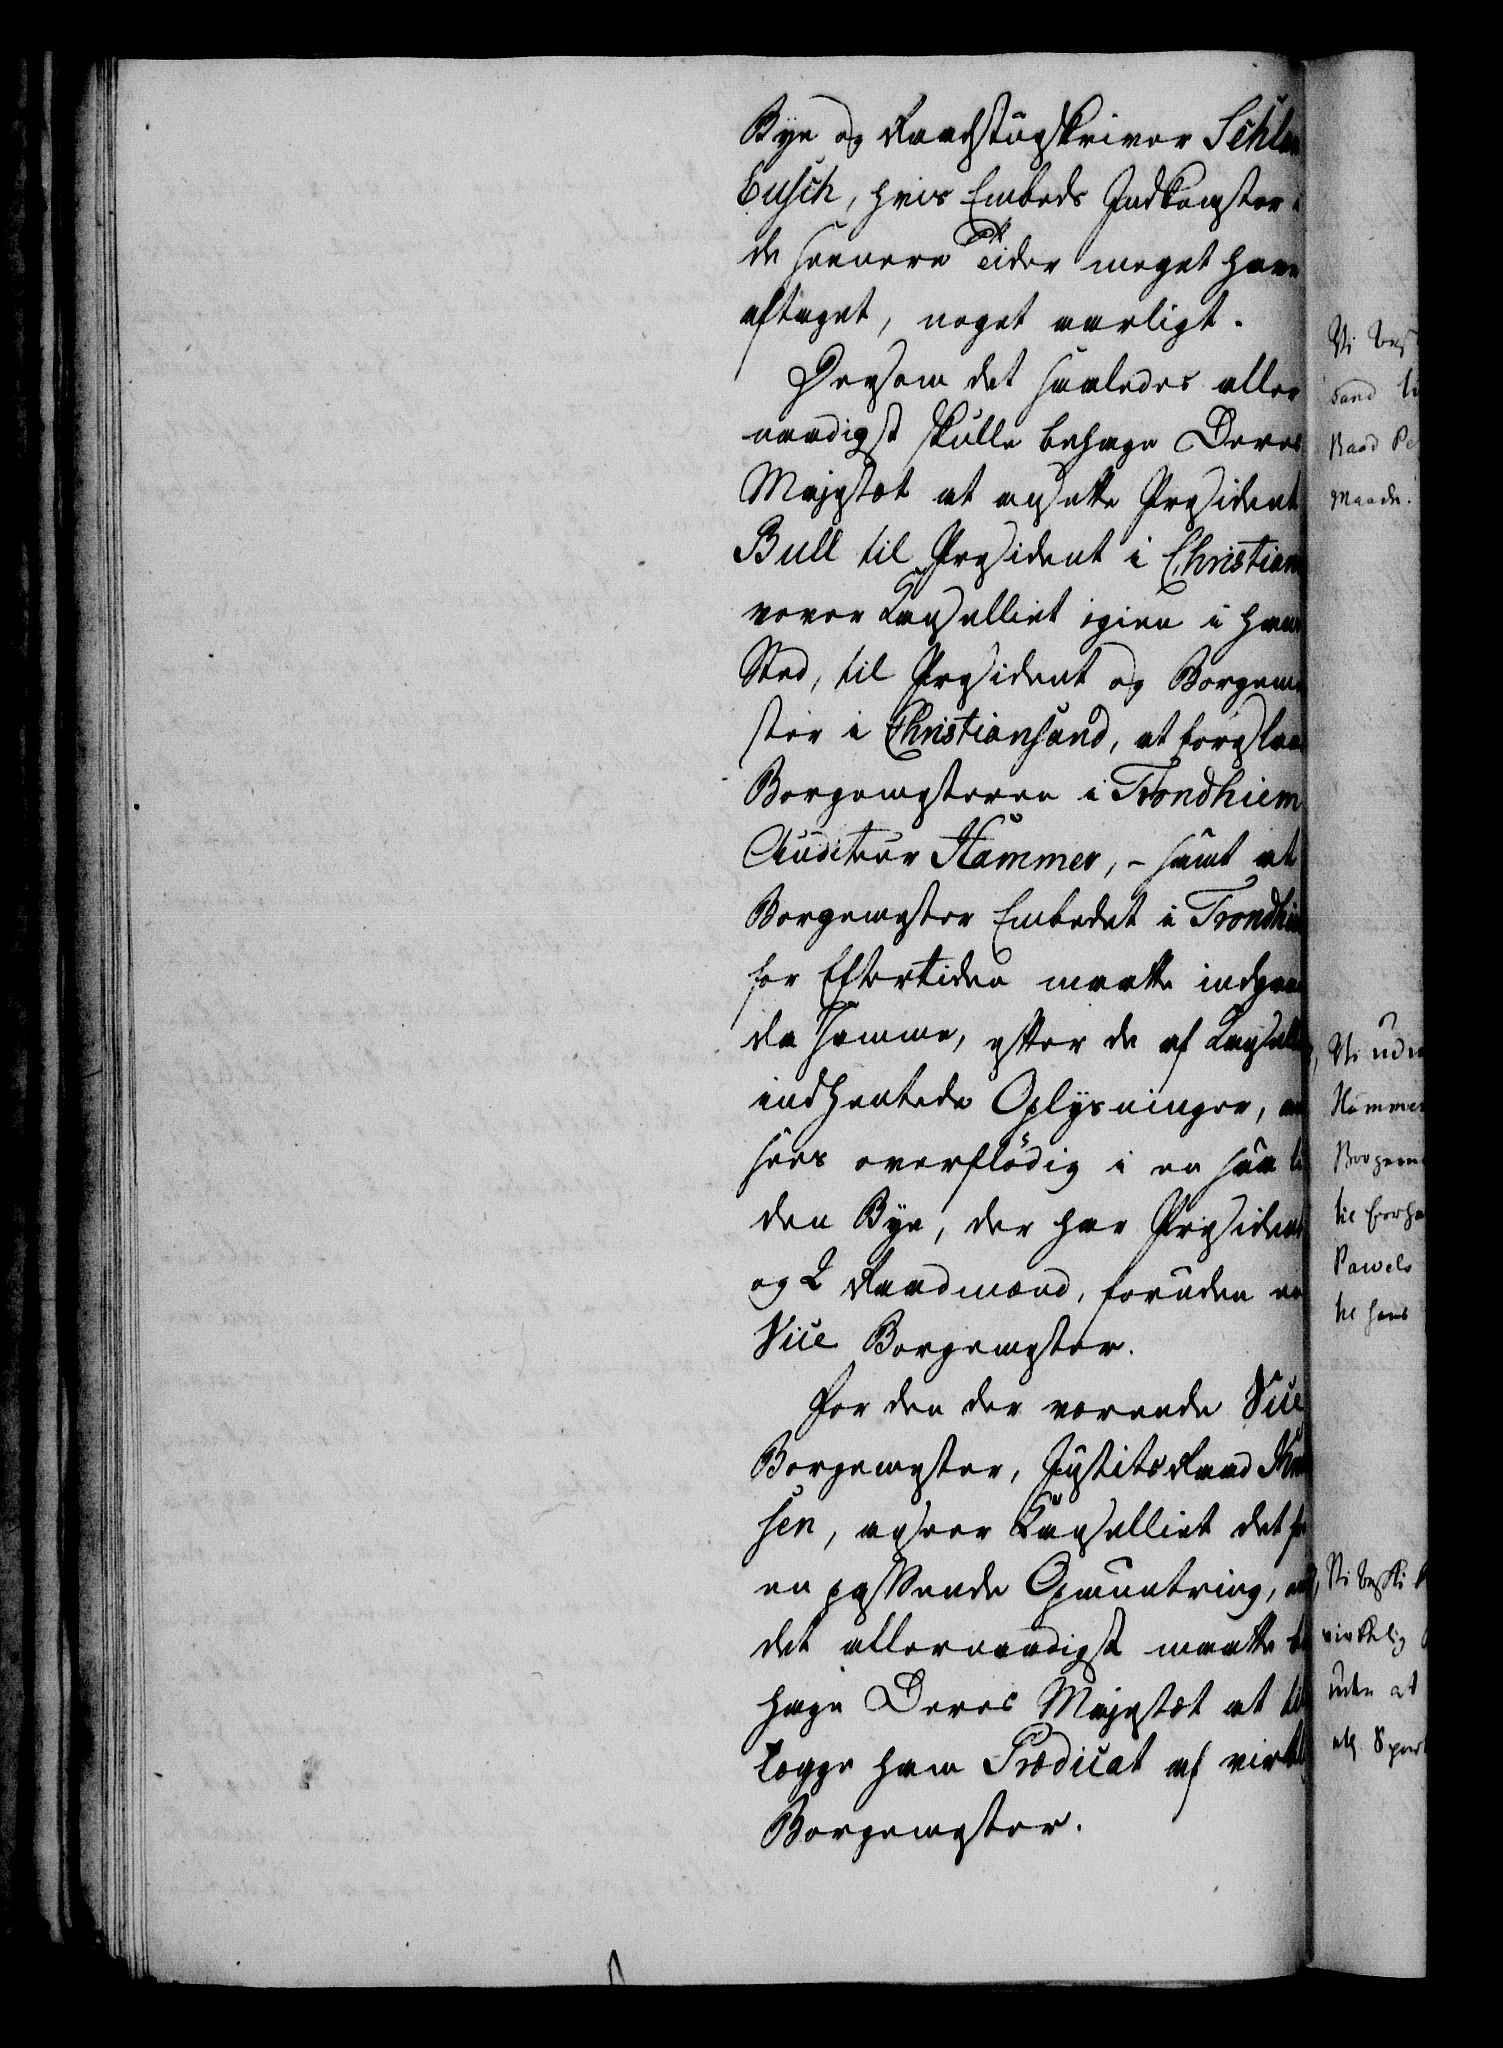 Bye og Raadstueskriver Schlan
busch, hvis Embeds Indkomster i
de seenere Tider meget have
aftaget, noget aarligt.
Dersom det saaledes aller
naadigst skulle behage Deres
Majestæt at ansætte Præsident
Bull til Præsident i Christian
vover Cancelliet igien i hans
Sted, til Præsident og Borgeme
ster i Christiansand, at foreslaae
Borgemesteren i Trondhiem
Auditeur Hammer, - samt at
Borgemester Embedet i Trondhie
for Eftertiden maatte indgaae
da samme, efter de af Cancelli
indhentede Oplysninger, an
sees overflödig i en saa li
den Bye, der har Præsident
og 2 Raadmænd, foruden en
Vice Borgemester.
For den der værende Vice
Borgemester, Justitsraad Knu
sen, anseer Cancelliet det for
en passende Opmuntring, om
det allernaadigst maatte be
hage Deres Majestæt at til
lægge ham Prædicat af virkel
Borgemester.
Vi besk
sand ti
Raad Pe
maade.
Vi udn
Hammer
Borgem
til forha
Pawels
til hans
Vi beskik
virkelig
uden at